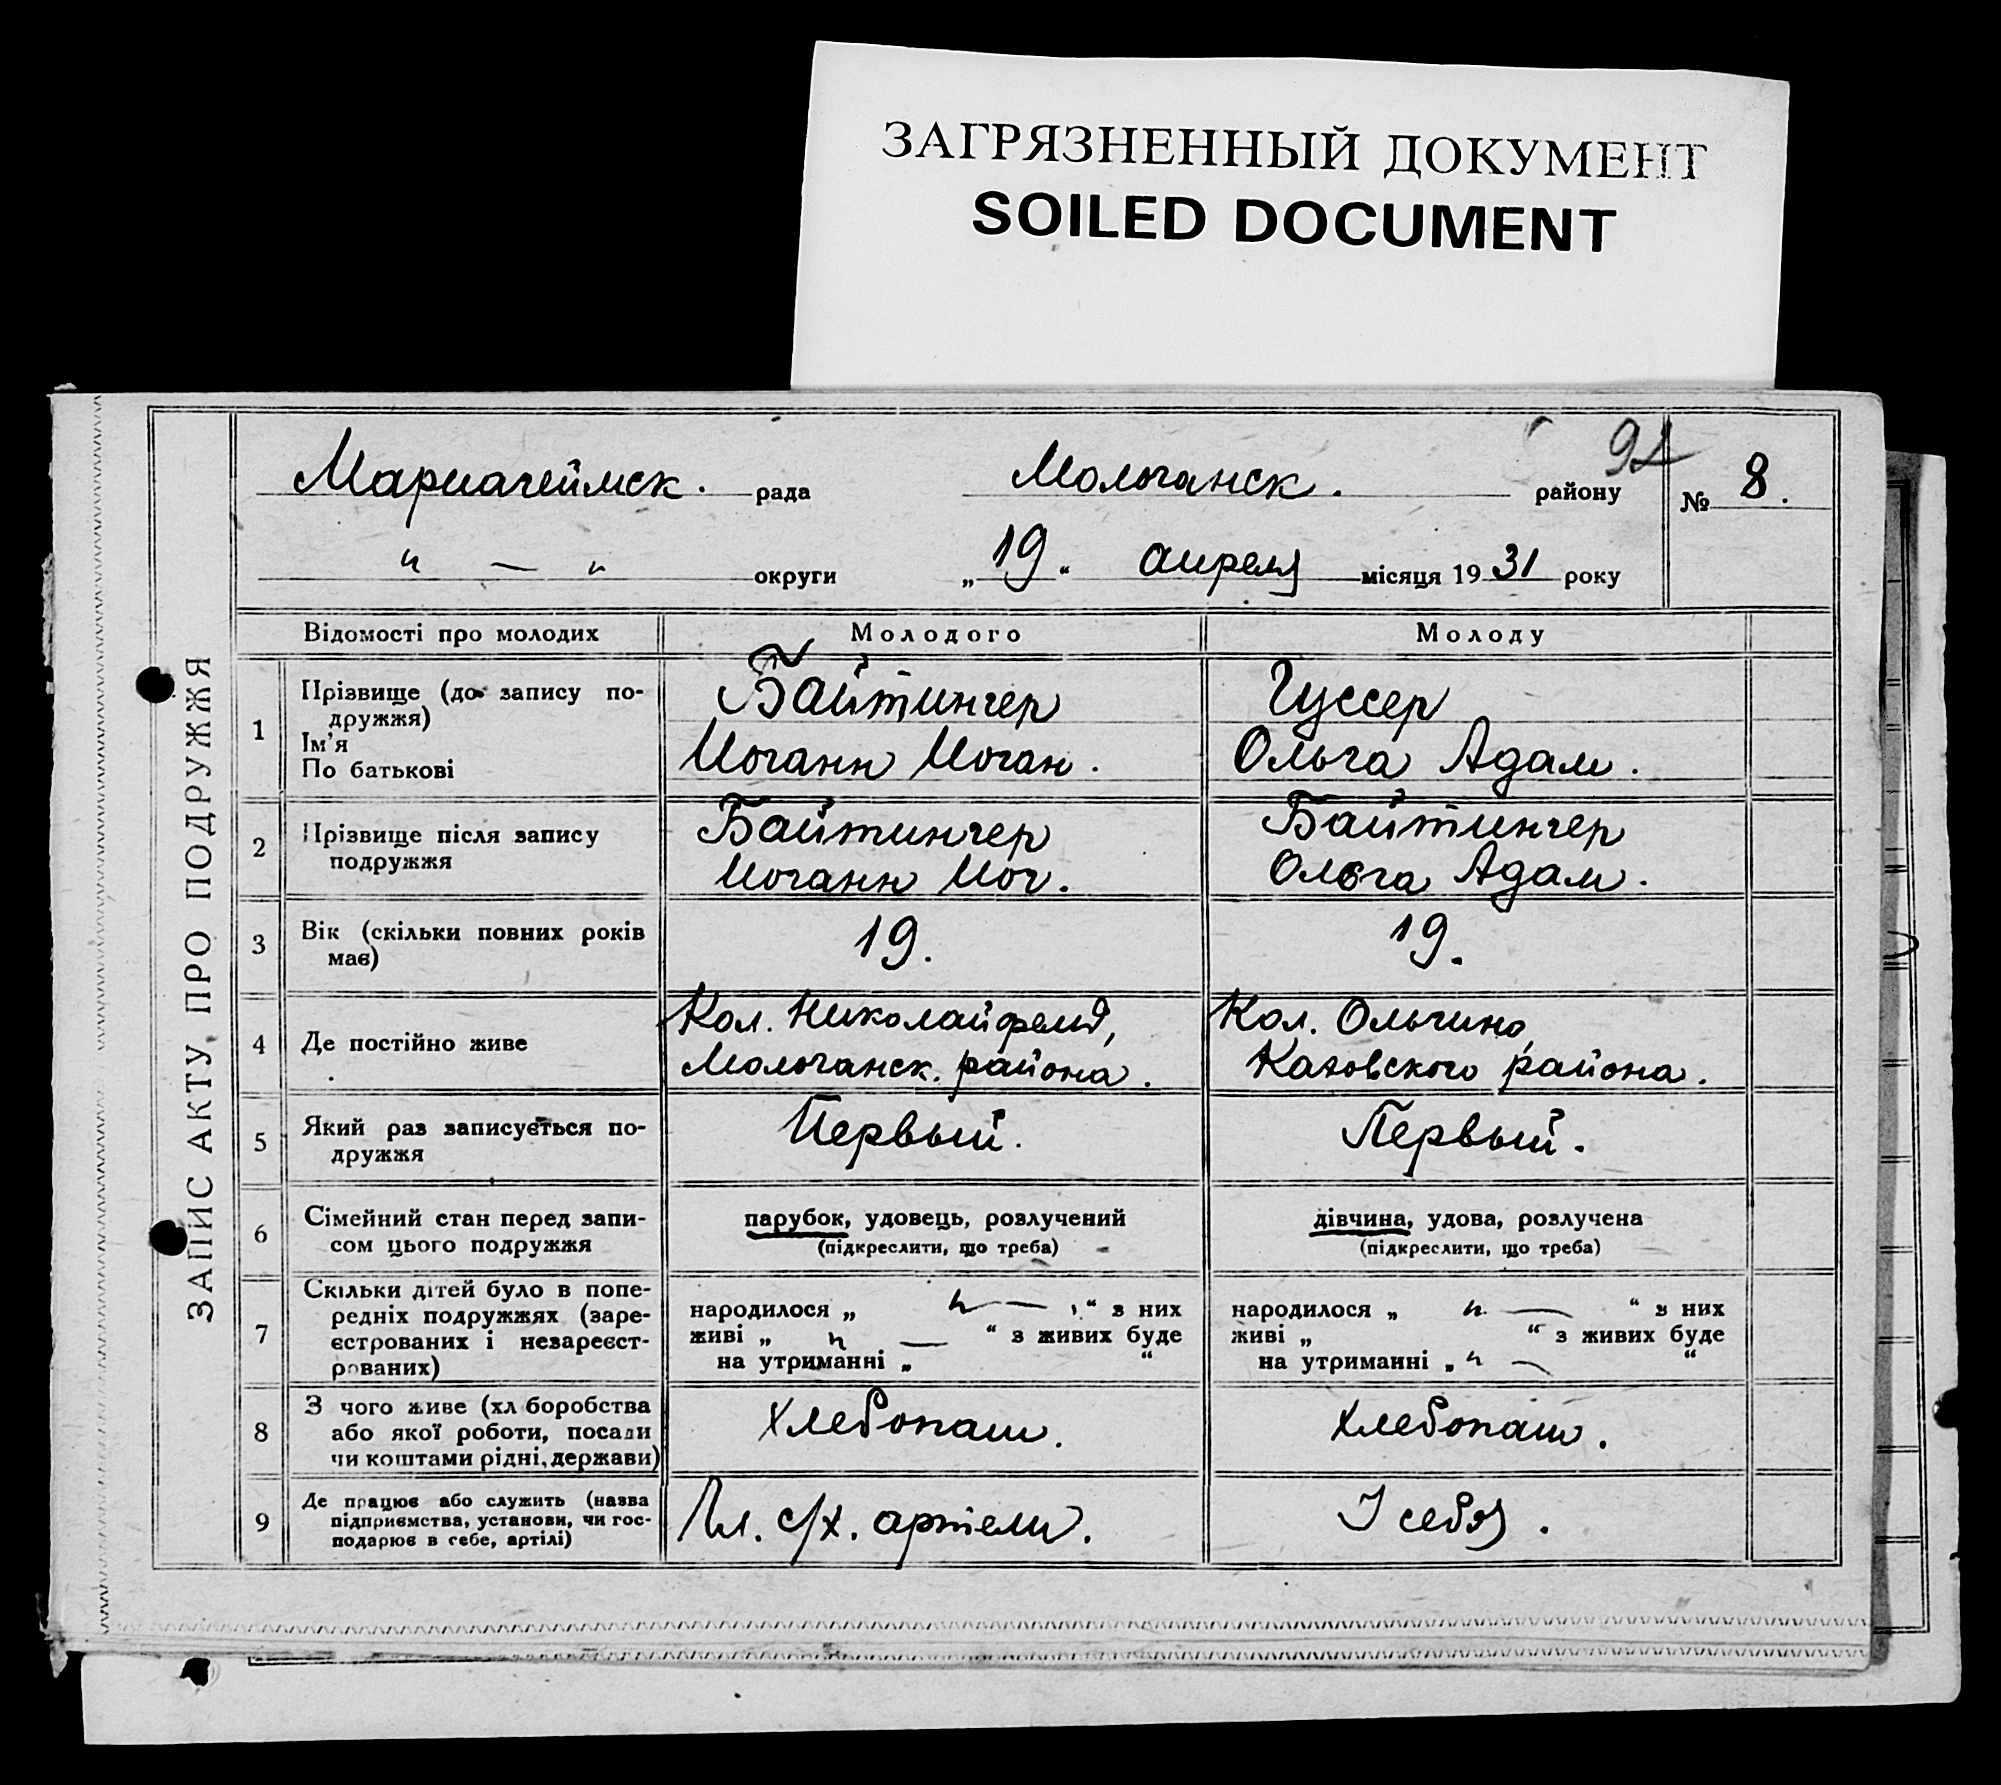 ЗАГРЯЗНЕННЫЙ ДОКУМЕНТ
SOILED DOCUMENT
ЗАПИС АКТУ ПРО ПОДРУЖЖЯ
Мариагеймск. рада Молочанск. району
№ 8.
„ — „ округи „19“ апреля місяця 1931 року
Відомості про молодих Молодого Молоду
1 Прізвище (до запису по-
дружжя)
Ім'я
По батькові
Байтингер
Иоганн Иоган.
Гуссер
Ольга Адам.
2 Прізвище після запису
подружжя
Байтингер
Иоганн Иог.
Байтингер
Ольга Адам.
3 Вік (скільки повних років
має)
19.
19.
4 Де постійно живе
Кол. Николайфельд,
Молочанск. района.
Кол. Ольгино,
Каховского района.
5 Який раз записується по-
дружжя
Первый.
Первый.
6 Сімейний стан перед запи-
сом цього подружжя
парубок, удовець, розлучений
(підкреслити, що треба)
дівчина, удова, розлучена
(підкреслити, що треба)
7 Скільки дітей було в попе-
редніх подружжях (заре-
єстрованих і незареєст-
рованих)
народилося „ „ — “ з них
живі „ „ — “ з живих буде
на утриманні „ “
народилося „ „ — “ з них
живі „ “ з живих буде
на утриманні „ „ — “
8 З чого живе (хліборобства
або якої роботи, посади
чи коштами рідні, держави)
Хлебопаш.
Хлебопаш.
9 Де працює або служить (назва
підприємства, установи, чи гос-
подарює в себе, артілі)
Чл. с/х. артели.
У себя.